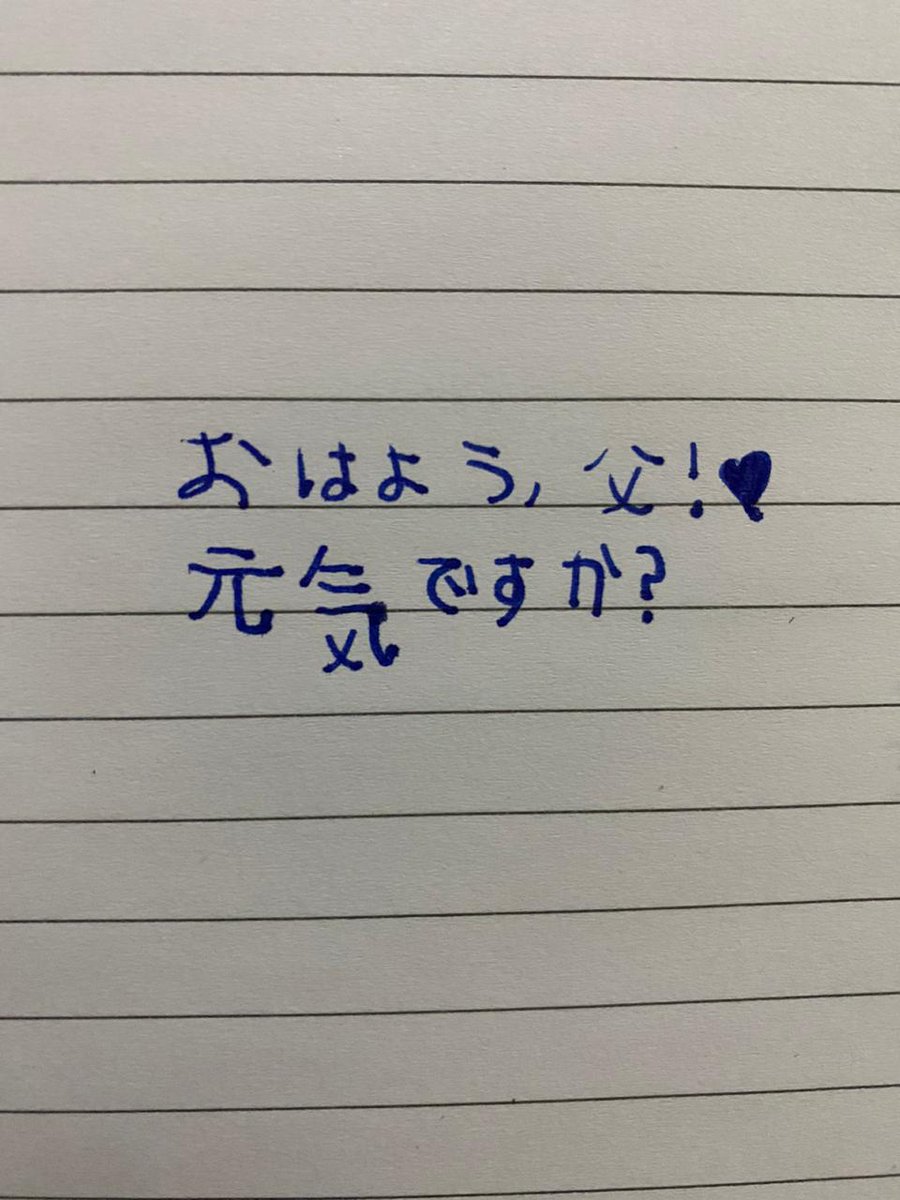 おはよう, 父!♥
元気ですか?